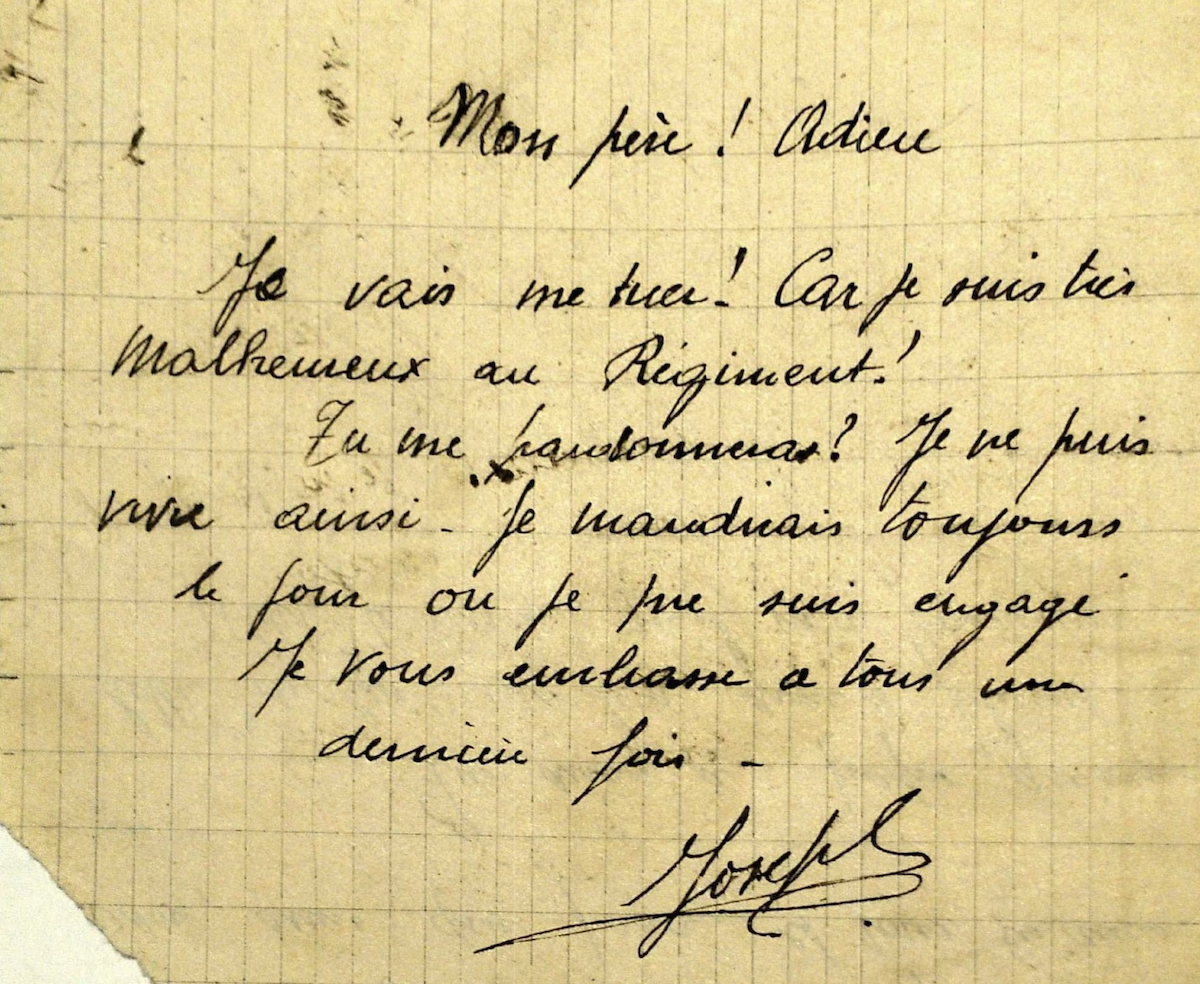 Mon père ! Adieu
Je vais me tuer ! Car je suis très
Malheureux au Régiment !
Tu me pardonneras ? Je ne puis
vivre ainsi - Je maudirais toujours
le jour ou je me suis engagé
Je vous embrasse a tous une
dernière fois -
Joseph